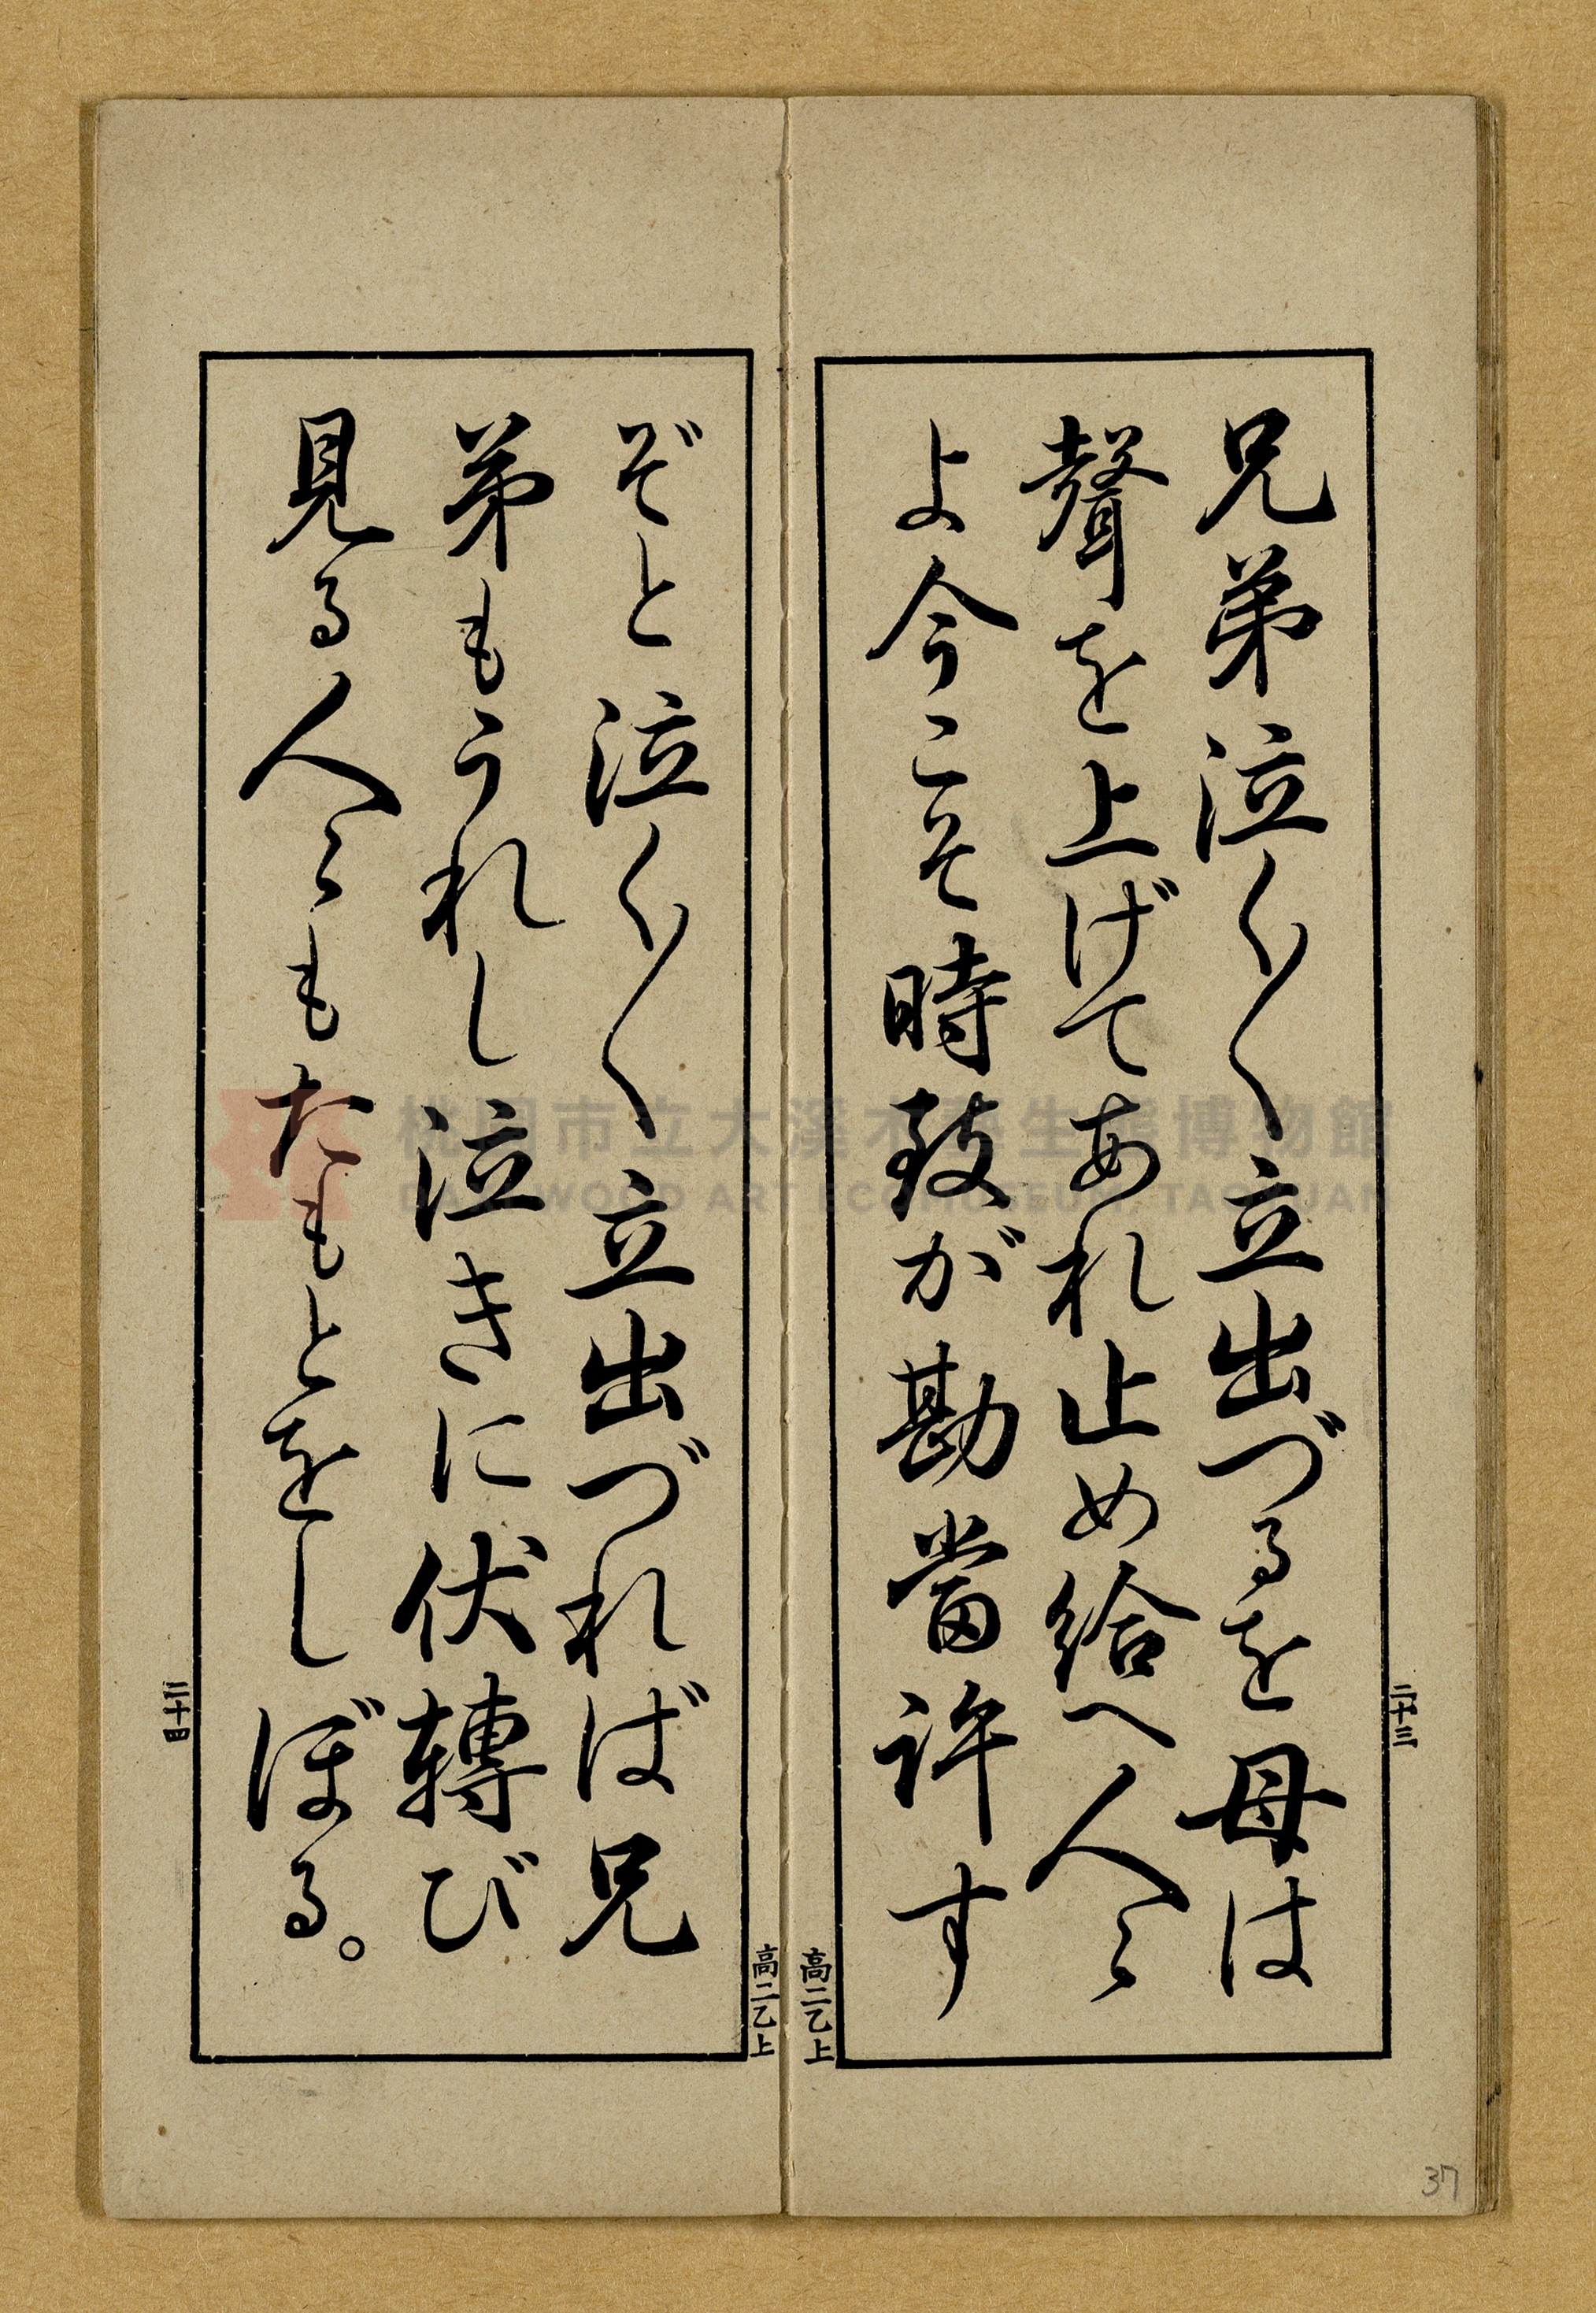 兄弟泣く〳〵立出づるを母は
聲を上げてあれ止め給へ人〻
よ今こそ時致が勘當許す
二十三
高二乙上
ぞと泣く〳〵立出づれば兄
弟もうれし泣きに伏轉び
見る人〻もたもとをしぼる。
二十四
高二乙上
37
桃園市立大溪木藝生態博物館
DAXI WOOD ART ECOMUSEUM, TAOYUAN